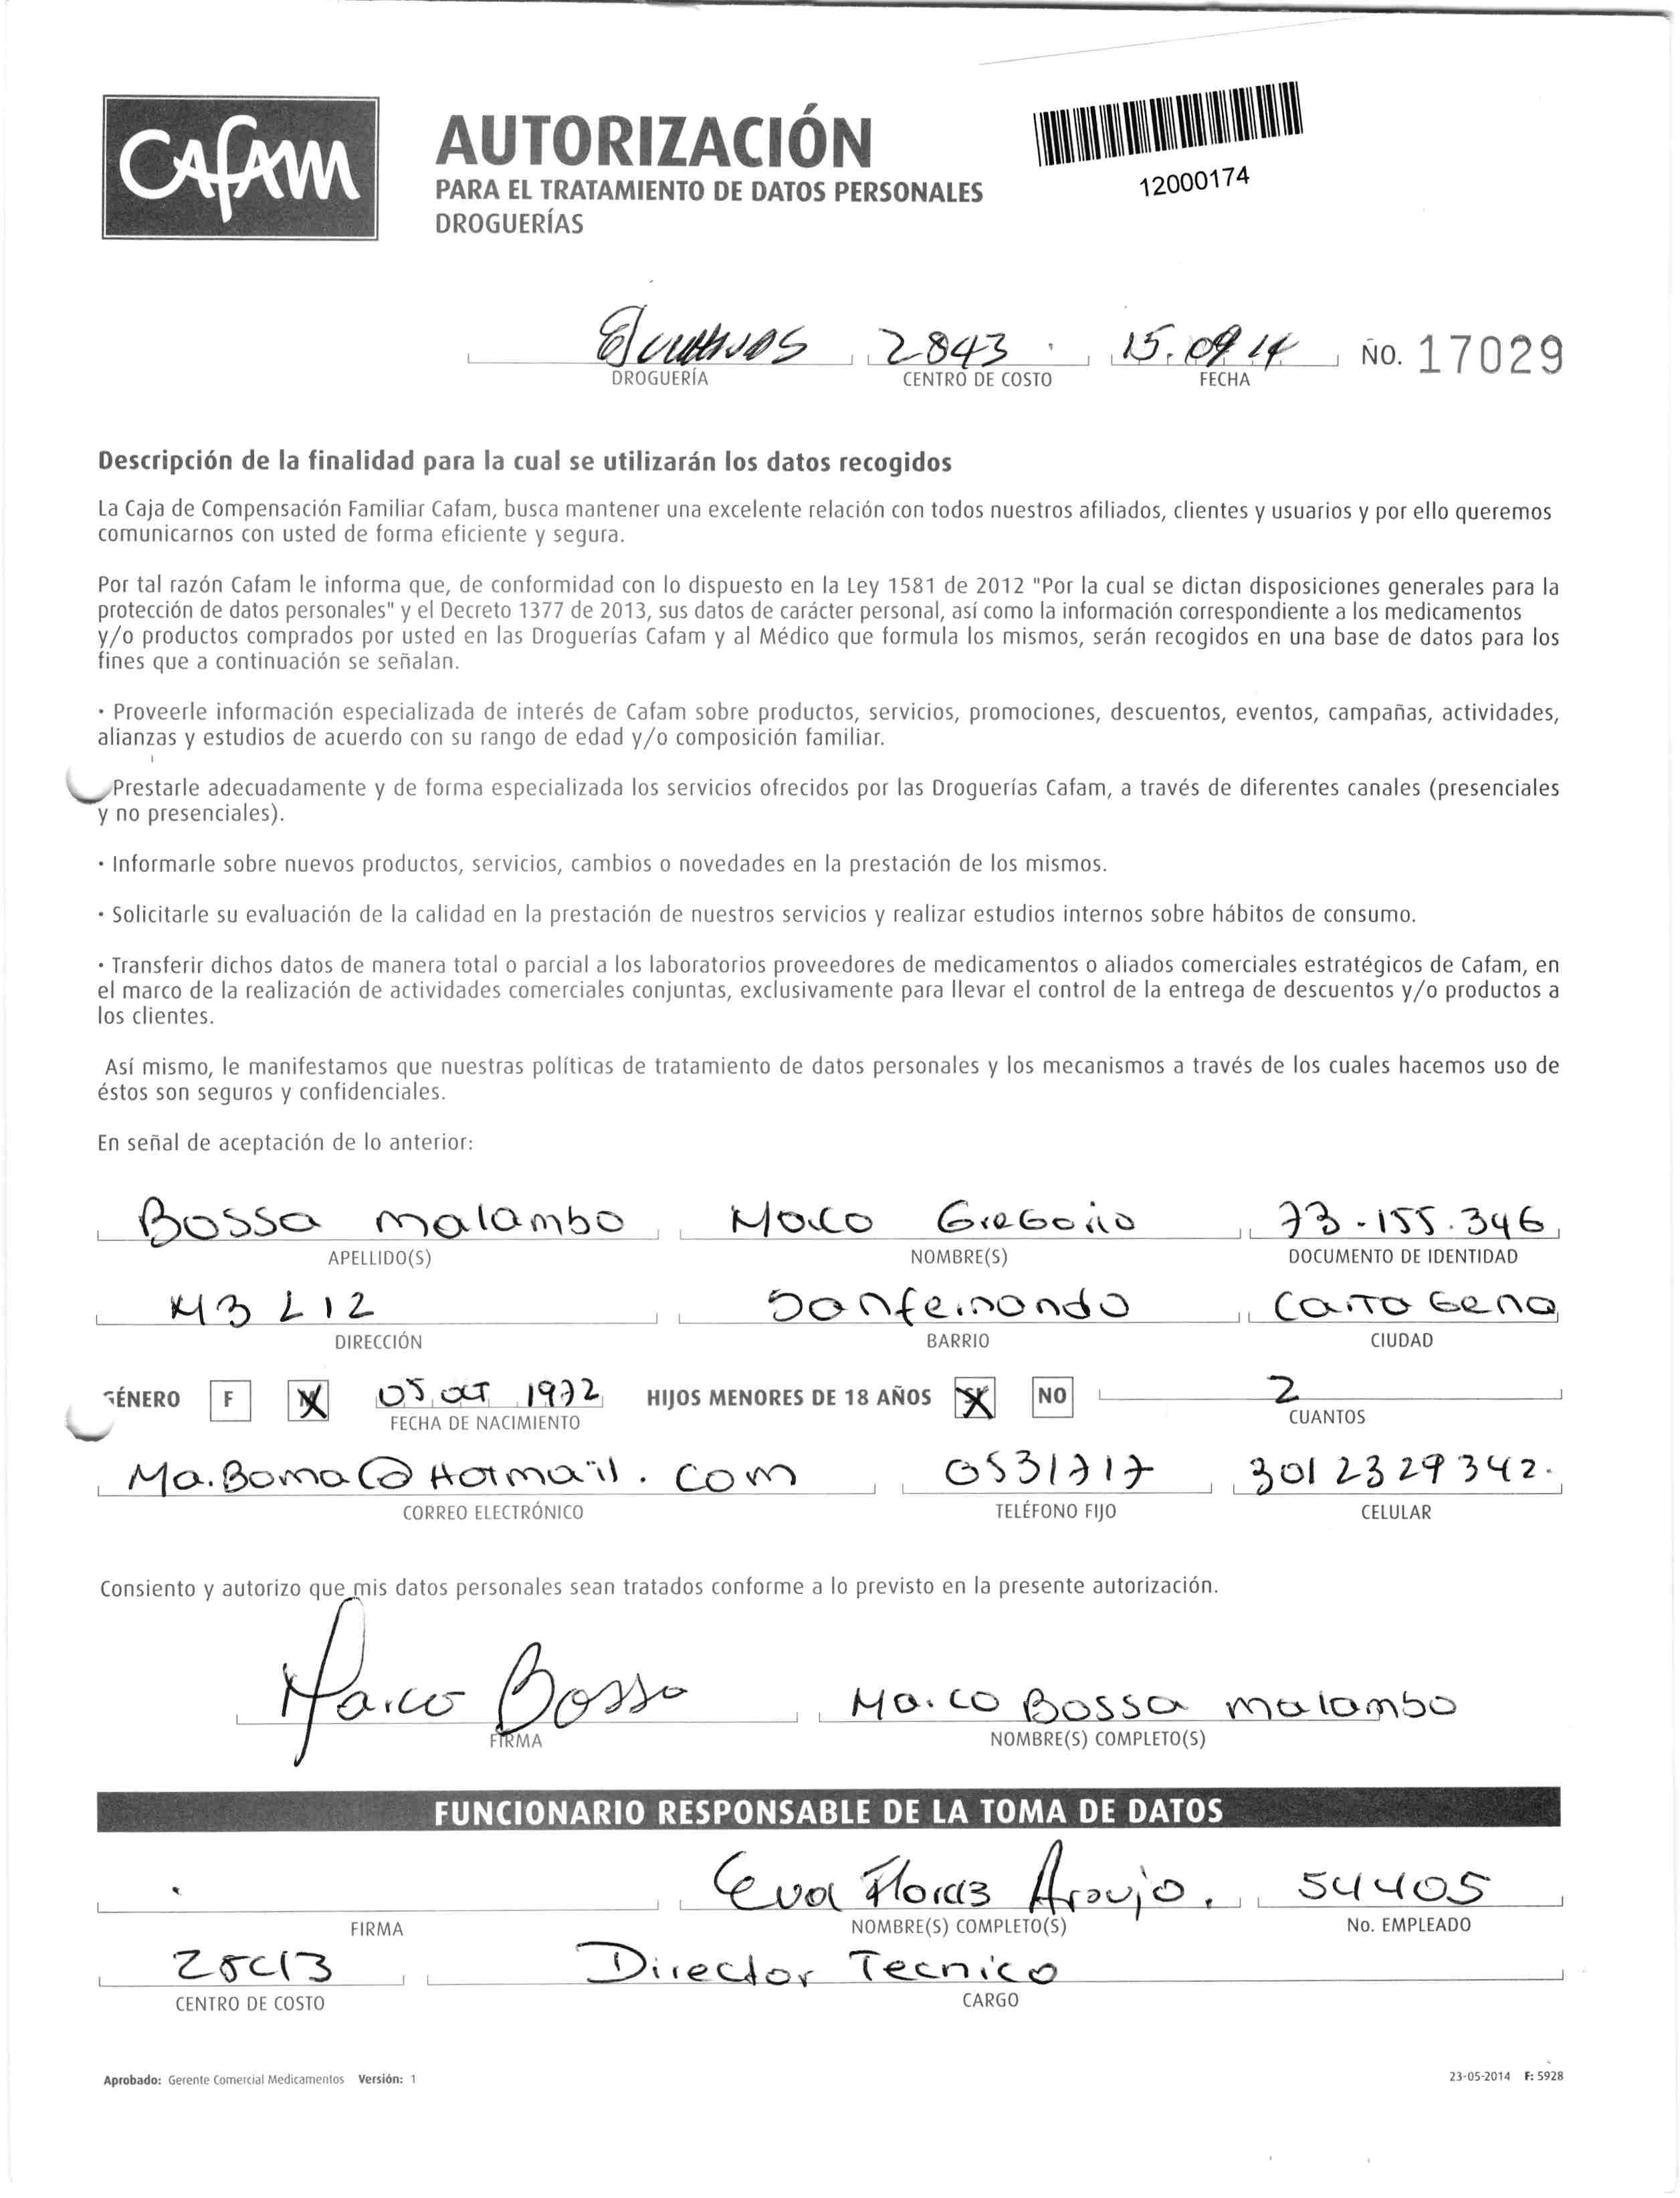 Cafam
AUTORIZACIÓN
PARA EL TRATAMIENTO DE DATOS PERSONALES
DROGUERÍAS
12000174
2843 15.09.14 No. 17029
DROGUERÍA CENTRO DE COSTO FECHA
Descripción de la finalidad para la cual se utilizarán los datos recogidos
La Caja de Compensación Familiar Cafam, busca mantener una excelente relación con todos nuestros afiliados, clientes y usuarios y por ello queremos
comunicarnos con usted de forma eficiente y segura.
Por tal razón Cafam le informa que, de conformidad con lo dispuesto en la Ley 1581 de 2012 "Por la cual se dictan disposiciones generales para la
protección de datos personales" y el Decreto 1377 de 2013, sus datos de carácter personal, así como la información correspondiente a los medicamentos
y/o productos comprados por usted en las Droguerías Cafam y al Médico que formula los mismos, serán recogidos en una base de datos para los
fines que a continuación se señalan.
· Proveerle información especializada de interés de Cafam sobre productos, servicios, promociones, descuentos, eventos, campañas, actividades,
alianzas y estudios de acuerdo con su rango de edad y/o composición familiar.
Prestarle adecuadamente y de forma especializada los servicios ofrecidos por las Droguerías Cafam, a través de diferentes canales (presenciales
y no presenciales).
· Informarle sobre nuevos productos, servicios, cambios o novedades en la prestación de los mismos.
· Solicitarle su evaluación de la calidad en la prestación de nuestros servicios y realizar estudios internos sobre hábitos de consumo.
· Transferir dichos datos de manera total o parcial a los laboratorios proveedores de medicamentos o aliados comerciales estratégicos de Cafam, en
el marco de la realización de actividades comerciales conjuntas, exclusivamente para llevar el control de la entrega de descuentos y/o productos a
los clientes.
Así mismo, le manifestamos que nuestras políticas de tratamiento de datos personales y los mecanismos a través de los cuales hacemos uso de
éstos son seguros y confidenciales.
En señal de aceptación de lo anterior:
Bossa malambo Marco Gregorio 73-155.346
APELLIDO(S) NOMBRE(S) DOCUMENTO DE IDENTIDAD
M3 L12 Sanfernando Cartagena
DIRECCIÓN BARRIO CIUDAD
GÉNERO F M 05 OCT 1972 HIJOS MENORES DE 18 AÑOS SI NO 2
FECHA DE NACIMIENTO CUANTOS
Ma.Boma@Hotmail.com 0531717 3012329342.
CORREO ELECTRÓNICO TELÉFONO FIJO CELULAR
Consiento y autorizo que mis datos personales sean tratados conforme a lo previsto en la presente autorización.
Marco Bossa Marco Bossa malambo
FIRMA NOMBRE(S) COMPLETO(S)
FUNCIONARIO RESPONSABLE DE LA TOMA DE DATOS
Eva Florez Araujo. 54405
FIRMA NOMBRE(S) COMPLETO(S) No. EMPLEADO
Director Tecnico
CENTRO DE COSTO CARGO
Aprobado: Gerente Comercial Medicamentos Versión: 1 23-05-2014 F: 5928